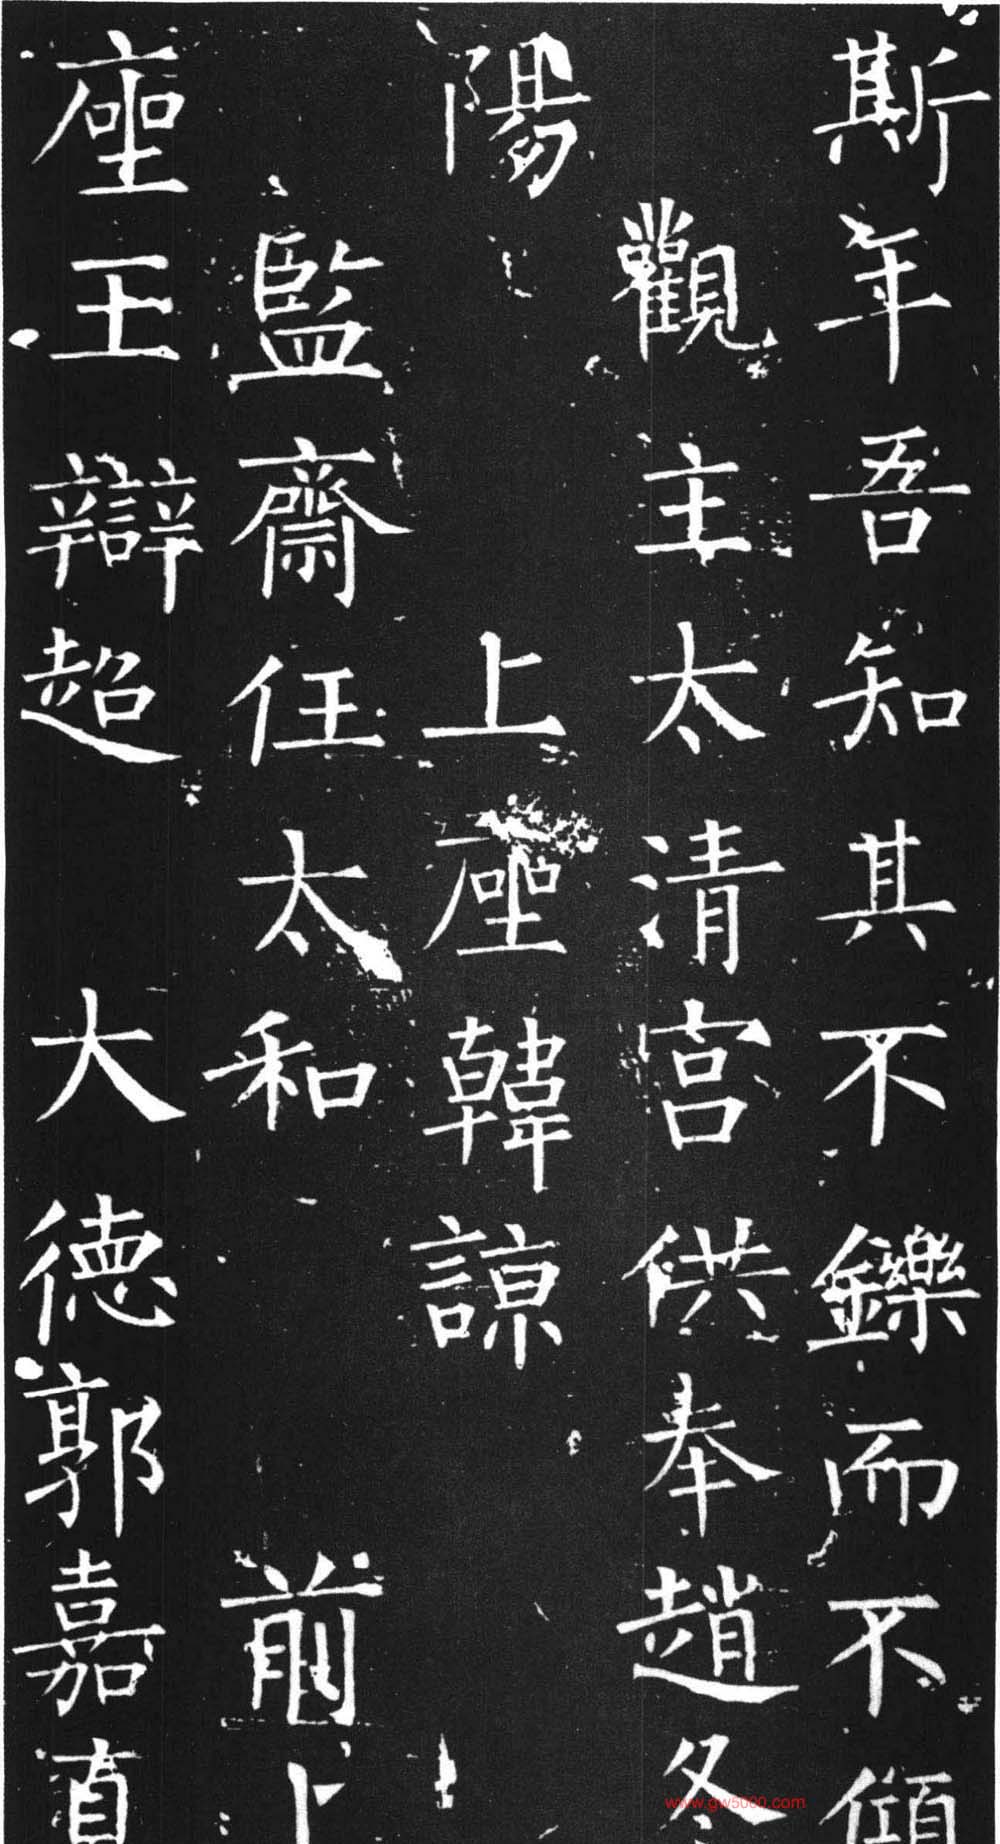 斯年吾知其不鑠而不傾
觀主太清宮供奉趙冬
陽
上座韓諒
監齋任太和
前上
座王辯超
大德郭嘉真
www.gw5000.com